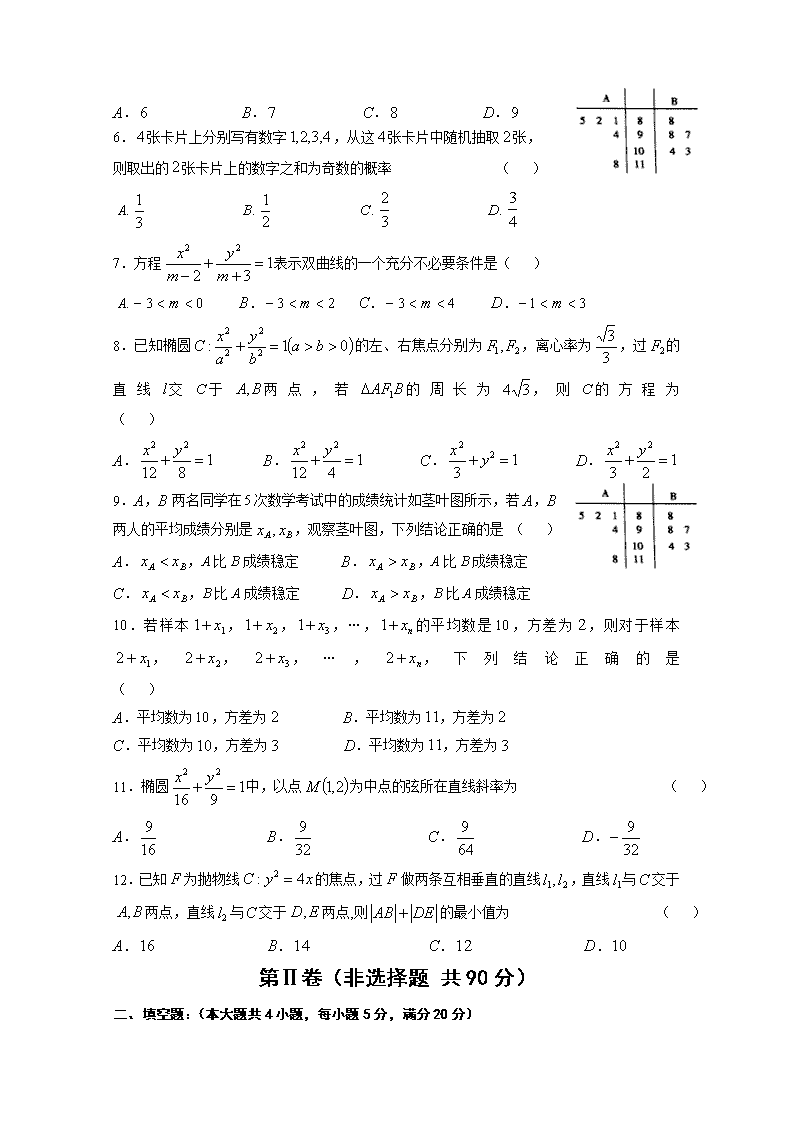 A．6 B．7 C．8 D．9
A B
5 2 1 8 8
4 9 8 7
10 4 3
8 11
6．4张卡片上分别写有数字1,2,3,4，从这4张卡片中随机抽取2张，
则取出的2张卡片上的数字之和为奇数的概率 （ ）
A. 1/3 B. 1/2 C. 2/3 D. 3/4
7．方程 x²/(m−2) + y²/(m+3) = 1表示双曲线的一个充分不必要条件是（ ）
A. −3 < m < 0 B．−3 < m < 2 C．−3 < m < 4 D．−1 < m < 3
8．已知椭圆C: x²/a² + y²/b² = 1(a > b > 0)的左、右焦点分别为F₁, F₂，离心率为√3/3，过F₂的
直线l交C于A, B两点，若ΔAF₁B的周长为4√3，则C的方程为
（ ）
A．x²/12 + y²/8 = 1 B．x²/12 + y²/4 = 1 C．x²/3 + y² = 1 D．x²/3 + y²/2 = 1
9．A，B两名同学在5次数学考试中的成绩统计如茎叶图所示，若A，B
两人的平均成绩分别是x_A, x_B，观察茎叶图，下列结论正确的是 （ ）
A．x_A < x_B，A比B成绩稳定 B．x_A > x_B，A比B成绩稳定
C．x_A < x_B，B比A成绩稳定 D．x_A > x_B，B比A成绩稳定
A B
5 2 1 8 8
4 9 8 7
10 4 3
8 11
10．若样本1+x₁，1+x₂，1+x₃，…，1+xₙ的平均数是10，方差为2，则对于样本
2+x₁，2+x₂，2+x₃，…，2+xₙ，下列结论正确的是
（ ）
A．平均数为10，方差为2 B．平均数为11，方差为2
C．平均数为10，方差为3 D．平均数为11，方差为3
11．椭圆x²/16 + y²/9 = 1中，以点M(1,2)为中点的弦所在直线斜率为 （ ）
A．9/16 B．9/32 C．9/64 D．−9/32
12．已知F为抛物线C: y² = 4x的焦点，过F做两条互相垂直的直线l₁, l₂，直线l₁与C交于
A, B两点，直线l₂与C交于D, E两点,则|AB| + |DE|的最小值为 （ ）
A．16 B．14 C．12 D．10
第Ⅱ卷（非选择题 共90分）
二、填空题：（本大题共4小题，每小题5分，满分20分）